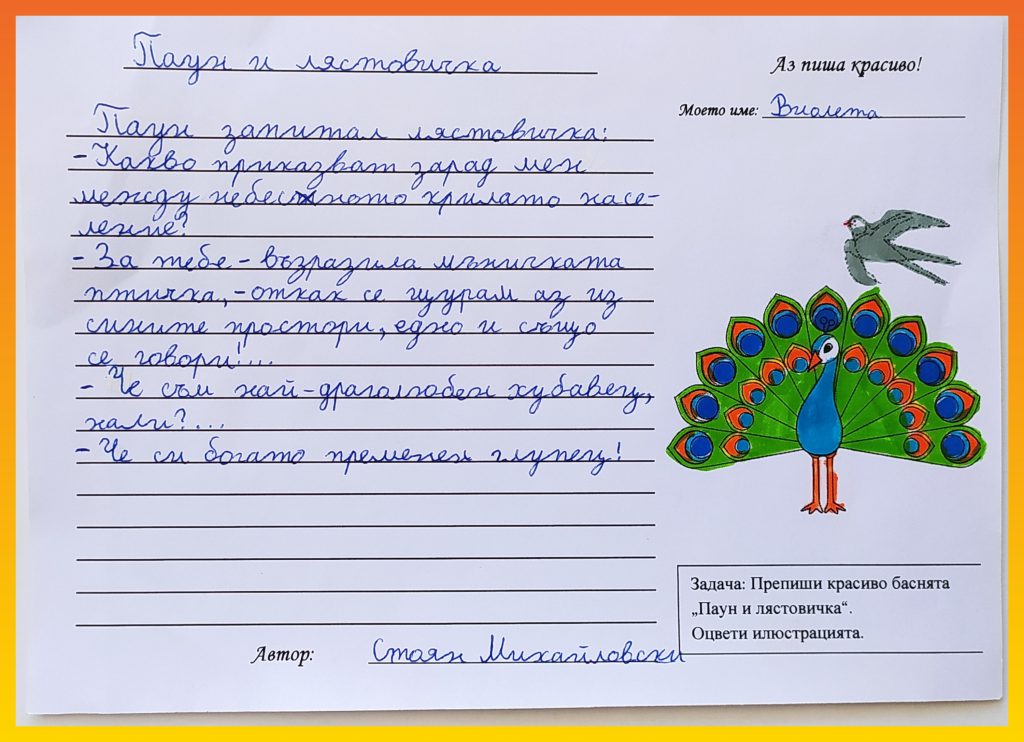 Паун и лястовичка
Аз пиша красиво!
Моето име: Виолета
Паун запитал лястовичка:
- Какво приказват зарад мен
между небесното крилато насе-
ление?
- За тебе - възразила мъничката
птичка, - откак се щурам аз из
сините простори, едно и също
се говори!...
- Че съм най-драголюбен хубавец,
нали?...
- Че си богато пременен глупец!
Задача: Препиши красиво баснята
„Паун и лястовичка“.
Оцвети илюстрацията.
Автор: Стоян Михайловски